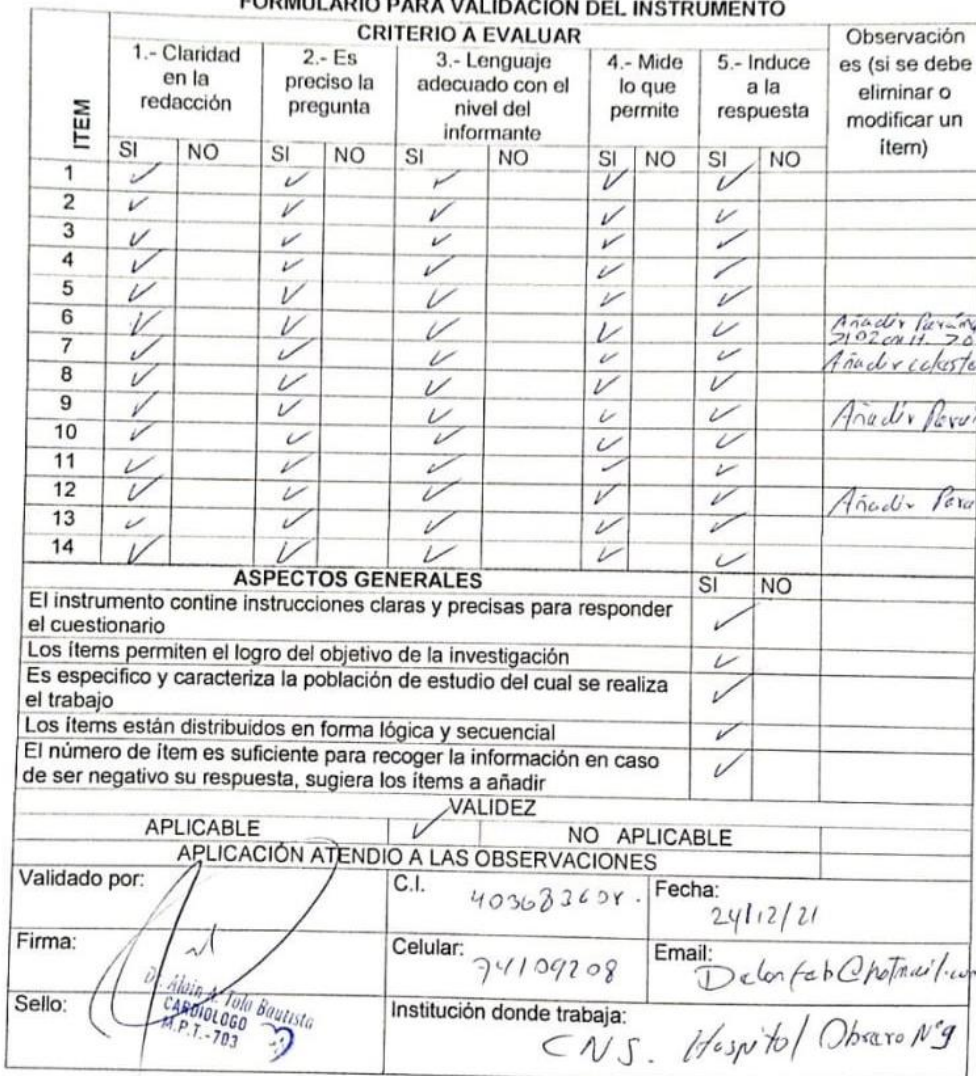 FORMULARIO PARA VALIDACIÓN DEL INSTRUMENTO
ITEM
CRITERIO A EVALUAR
1.- Claridad en la redacción
2.- Es preciso la pregunta
3.- Lenguaje adecuado con el nivel del informante
4.- Mide lo que permite
5.- Induce a la respuesta
Observación es (si se debe eliminar o modificar un ítem)
SI NO SI NO SI NO SI NO SI NO
1 ✓ ✓ ✓ ✓ ✓
2 ✓ ✓ ✓ ✓ ✓
3 ✓ ✓ ✓ ✓ ✓
4 ✓ ✓ ✓ ✓ ✓
5 ✓ ✓ ✓ ✓ ✓
6 ✓ ✓ ✓ ✓ ✓ Añadir
7 ✓ ✓ ✓ ✓ ✓ Añadir
8 ✓ ✓ ✓ ✓ ✓
9 ✓ ✓ ✓ ✓ ✓ Añadir
10 ✓ ✓ ✓ ✓ ✓
11 ✓ ✓ ✓ ✓ ✓
12 ✓ ✓ ✓ ✓ ✓ Añadir
13 ✓ ✓ ✓ ✓ ✓
14 ✓ ✓ ✓ ✓ ✓
ASPECTOS GENERALES SI NO
El instrumento contine instrucciones claras y precisas para responder
el cuestionario ✓
Los ítems permiten el logro del objetivo de la investigación ✓
Es especifico y caracteriza la población de estudio del cual se realiza
el trabajo ✓
Los ítems están distribuidos en forma lógica y secuencial ✓
El número de ítem es suficiente para recoger la información en caso
de ser negativo su respuesta, sugiera los ítems a añadir ✓
VALIDEZ
APLICABLE ✓ NO APLICABLE
APLICACIÓN ATENDIO A LAS OBSERVACIONES
Validado por:
C.I.
Fecha: 24/12/21
Firma:
Celular: 74109208
Email:
Sello:
Dr. Alain A. Tola Bautista
CARDIOLOGO
M.P.T.-703
Institución donde trabaja:
CNS. Hospital Obrero N°9